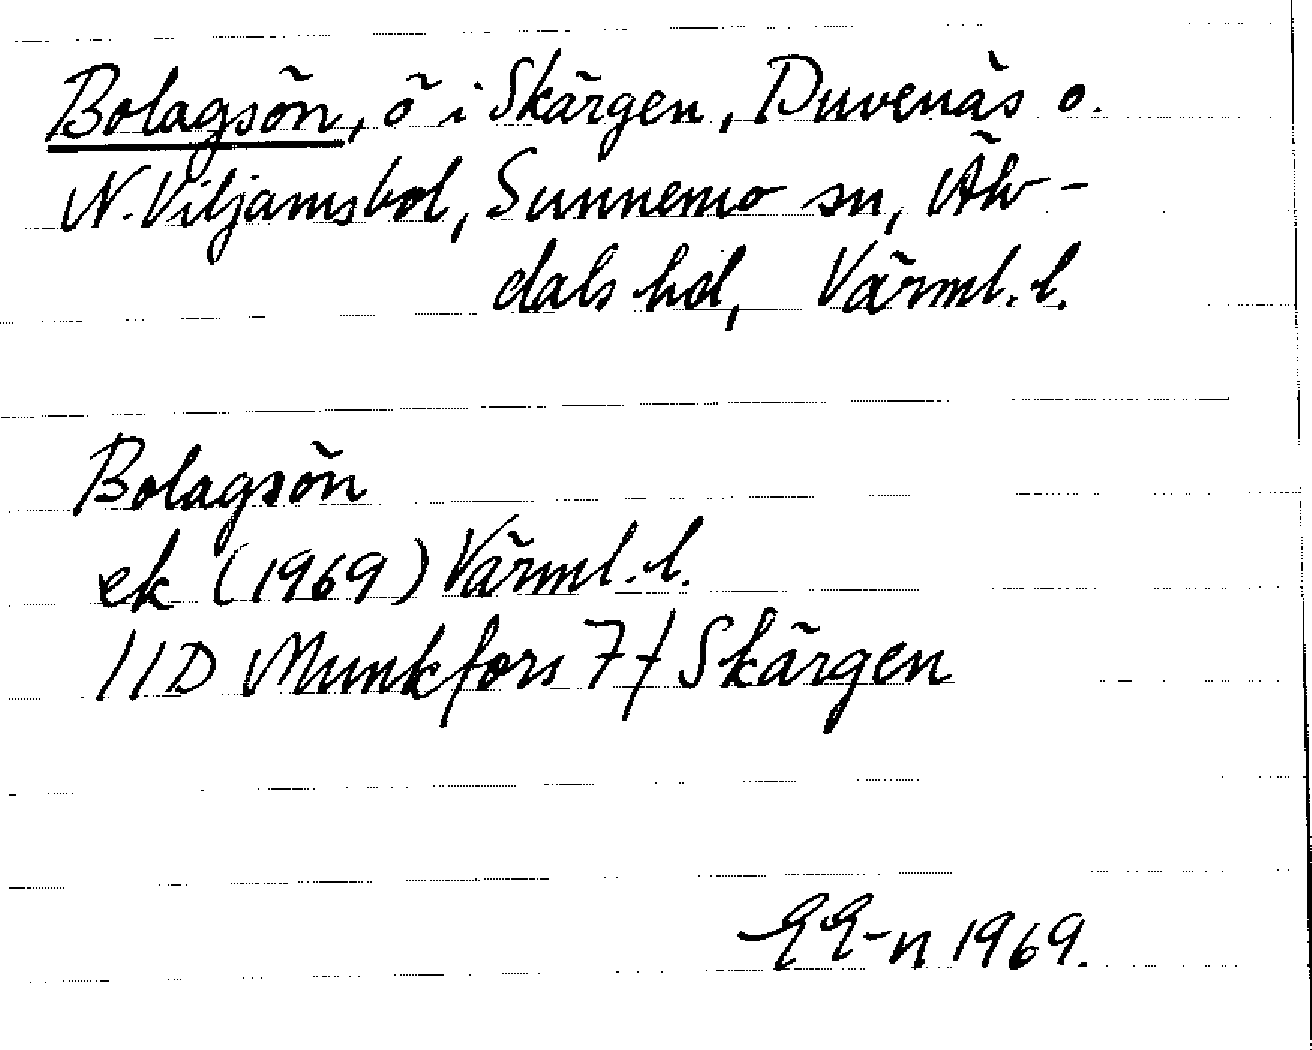 Bolagsön, ö i Skärgen, Duvenäs o.
N. Viljamsbol, Sunnemo sn, Älv-
dals hd, Värml. l.
Bolagsön
ek (1969) Värml. l.
11D Munkfors 7f Skärgen
EE-n 1969.